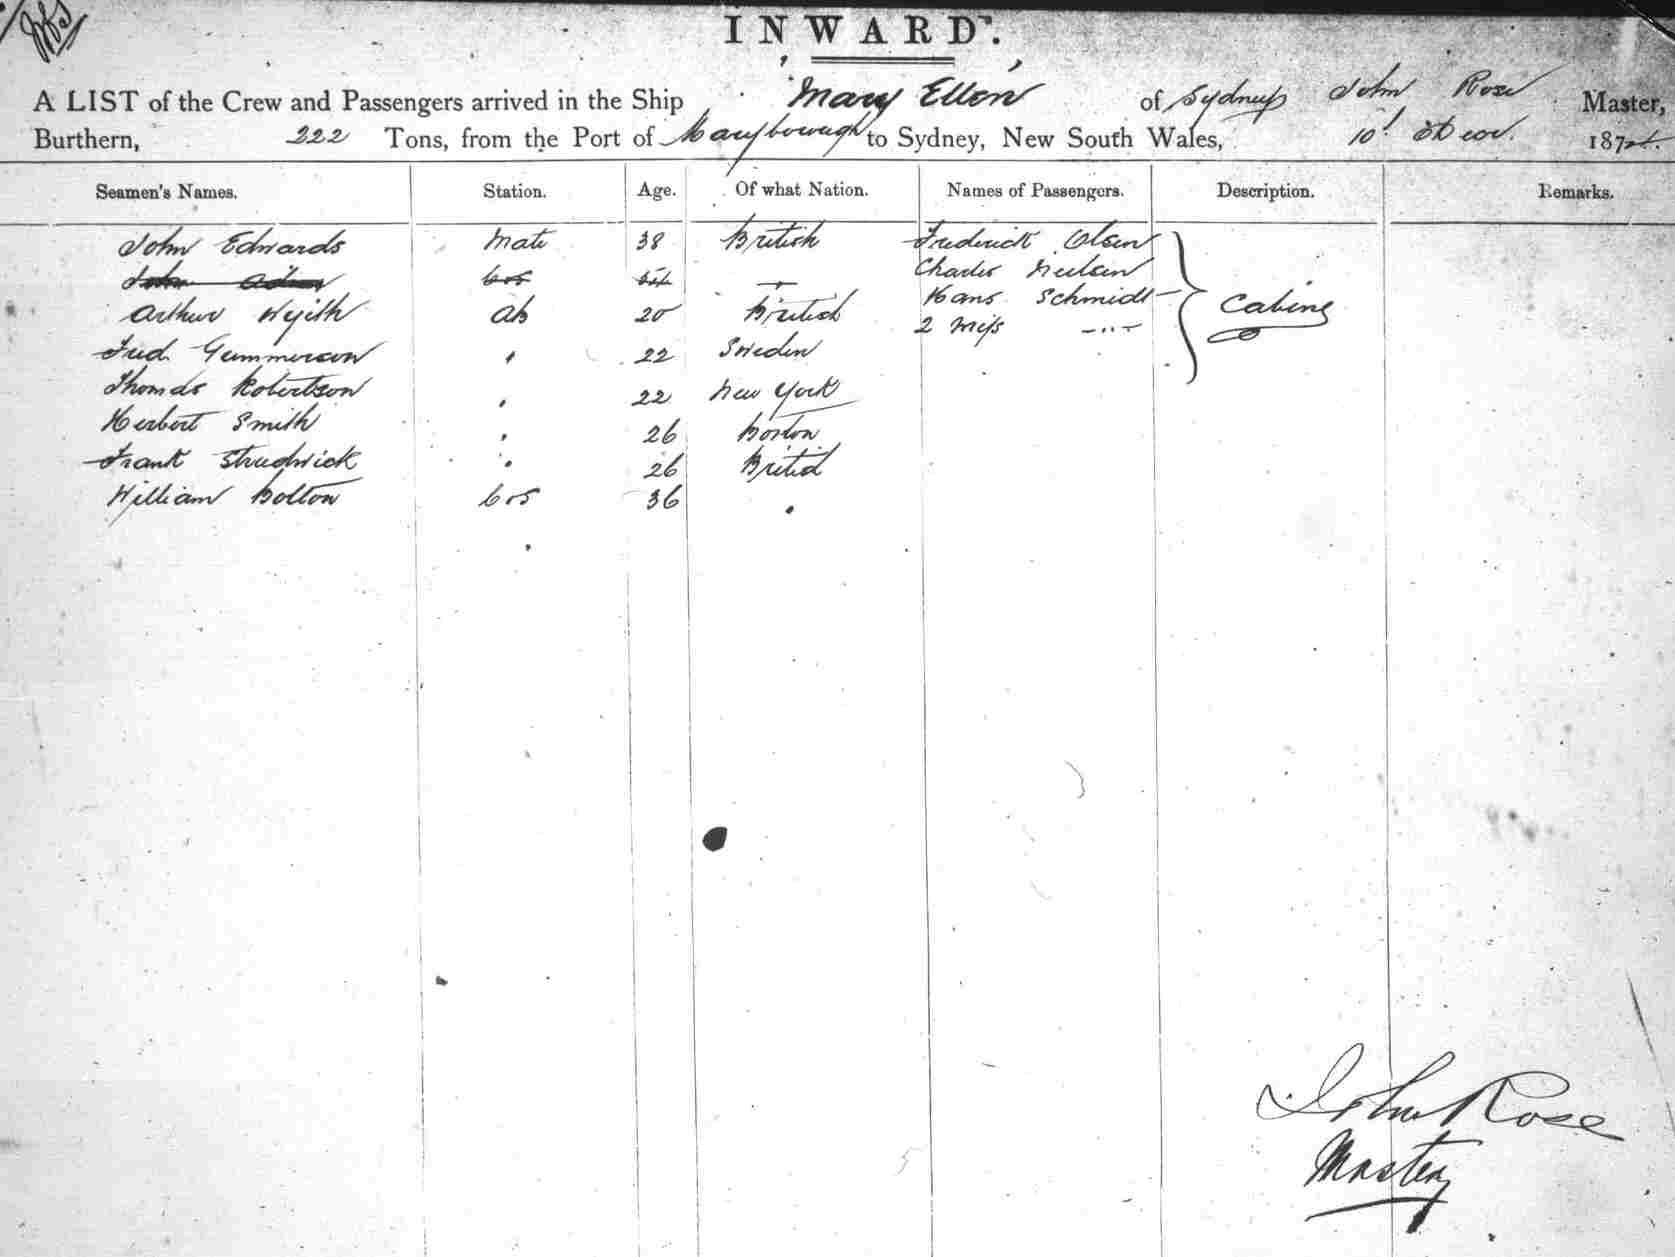 INWARD.
A LIST of the Crew and Passengers arrived in the Ship 'Mary Ellen' of Sydney John Rose Master,
Burthern, 222 Tons, from the Port of Maryborough to Sydney, New South Wales, 10 187
Seamen's Names. Station. Age. Of what Nation. Names of Passengers. Description. Remarks.
John Edwards Mate 38 British Frederick Olsen
John Charles Neilsen
Arthur Wyith AB 20 British Hans Schmidt Cabin
2 Miss
Fred Gummerson " 22 Sweden
Thomas Robertson " 22 New York
Herbert Smith " 26 Boston
Frank Strudwick " 26 British
William Bolton 36 "
John Rose
Master